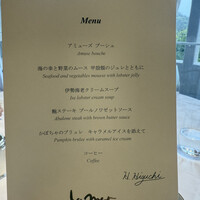 Menu
アミューズ ブーシュ
Amuse bouche
海の幸と野菜のムース 甲殻類のジュレとともに
Seafood and vegetables mousse with lobster jelly
伊勢海老クリームスープ
Ise lobster cream soup
鮑ステーキ ブールノワゼットソース
Abalone steak with brown butter sauce
かぼちゃのブリュレ キャラメルアイスを添えて
Pumpkin brulee with caramel ice cream
コーヒー
Coffee
H. Higuchi
La mer